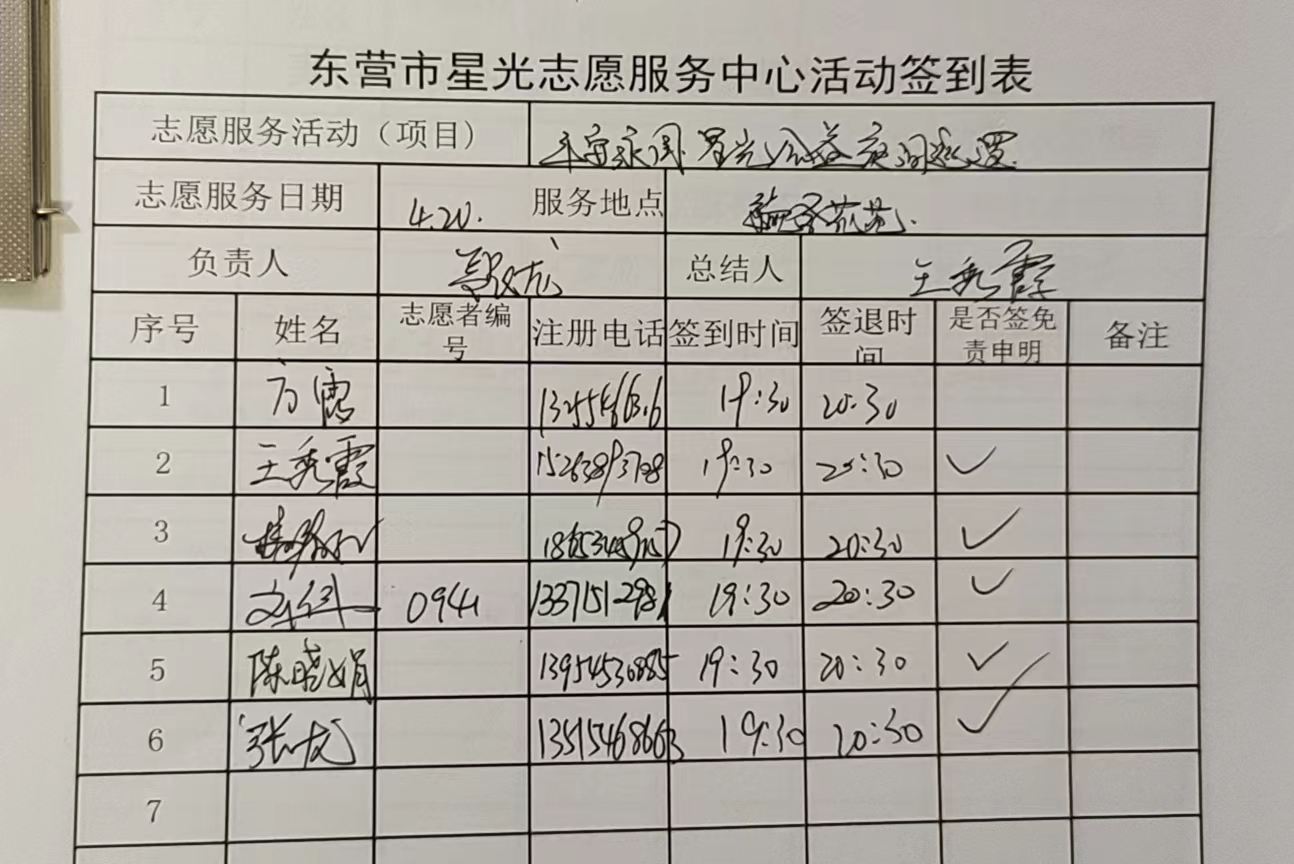 东营市星光志愿服务中心活动签到表
志愿服务活动（项目） 平安家园 星光公益夜间巡逻
志愿服务日期 4.20. 服务地点
负责人 总结人 王秀霞
序号 姓名 志愿者编号 注册电话 签到时间 签退时间 是否签免责申明 备注
1 19:30 20:30
2 王秀霞 19:30 20:30 ✓
3 19:30 20:30 ✓
4 0941 13371512981 19:30 20:30 ✓
5 陈晓娟 13954530885 19:30 20:30 ✓
6 张龙 13515468663 19:30 20:30 ✓
7